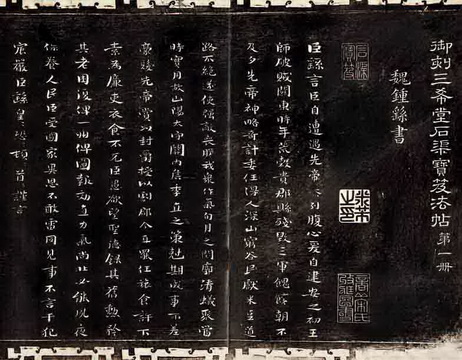 御刻三希堂石渠寶笈法帖第一冊
魏鍾繇書
臣繇言臣自遭遇先帝忝列腹心爰自建安之初王
師破賊關東時年荒穀貴郡縣殘毀三軍餽饟朝不
及夕先帝神略奇計委任得人深山窮谷民獻米豆道
路不絕遂使強敵喪膽我眾作氣旬月之間廓清蟻聚當
時實用故山陽太守關內侯季直之策剋期成事不差
豪髮先帝賞以封爵授以劇郡今直罷任旅食許下
素為廉吏衣食不充臣愚欲望聖德錄其舊勳矜
其老困復俾一州俾圖報效直力氣尚壯必能夙夜
保養人民臣受國家異恩不敢雷同見事不言干犯
宸嚴臣繇皇恐頓首謹言